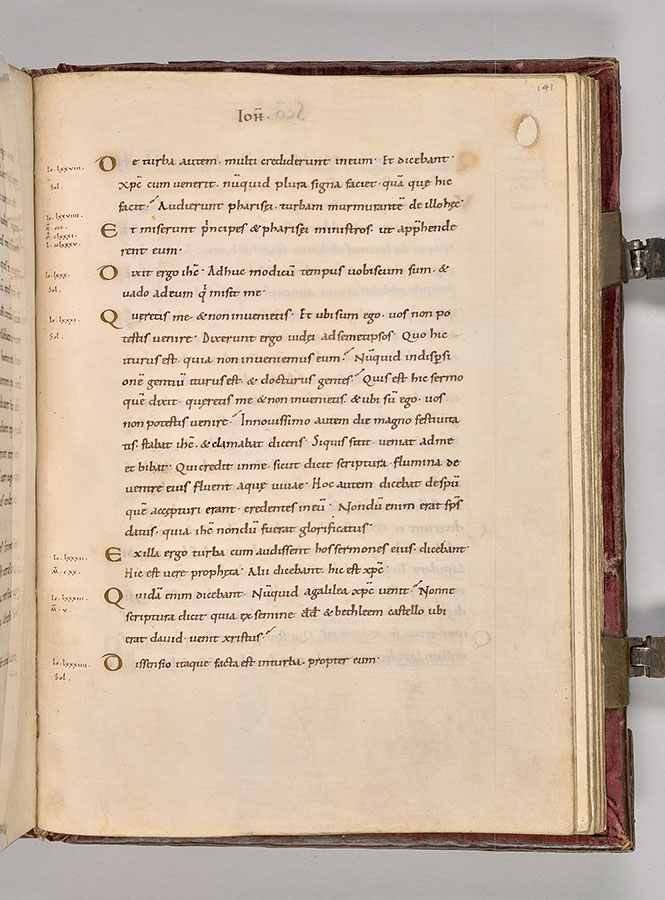 141
Ioh̄.
De turba autem. multi crediderunt ineum. Et dicebant.
xp̄c cum venerit. nūquid plura signa faciet. quā quę hic
facit. Audierunt pharisei. turbam murmurantē de illo hęc.
Et miserunt p̄ncipes & pharisei ministros. ut app̄hende
rent eum.
Dixit ergo ih̄c. Adhuc modicū tempus uobiscum sum. &
vado adeum q̄ misit me.
Queretis me. & non invenietis. Et ubi sum ego. vos non po
testis venire. Dixerunt ergo iudei adsemetipsos. Quo hic
iturus est. quia non inveniemus eum. Nūquid indisp̄si
onē gentiū iturus est. & docturus gentes. Quis est hic sermo
quē dixit. queretis me & non invenietis. & ubi sū ego. vos
non potestis venire. Innovissimo autem die magno festivita
tis. stabat ih̄c. & clamabat dicens. Siquis sitit. veniat adme
et bibat. Qui credit inme. sicut dicit scriptura. flumina de
ventre eius fluent aquę vivae. Hoc autem dicebat desp̄ū
quē accepturi erant. credentes ineū. Nondū enim erat sp̄s
datus. quia ih̄c nondū fuerat glorificatus.
Ex illa ergo turba cum audissent hos sermones eius. dicebant.
Hic est vere propheta. Alii dicebant. hic est xp̄c.
Quidā enim dicebant. Nūquid agalilea xp̄c venit. Nonne
scriptura dicit quia ex semine dd̄. & bethleem castello ubi
erat david. venit xristus.
Dissensio itaque facta est inturba. propter eum.
Io. lxxviii.
Sol.
Io. lxxviiii.
Io. lxxx.
Sol.
Io. lxxxi.
Sol.
Io. lxxxii.
M̄. cxx.
Io. lxxxiii.
M̄. v.
Io. lxxxiiii.
Sol.